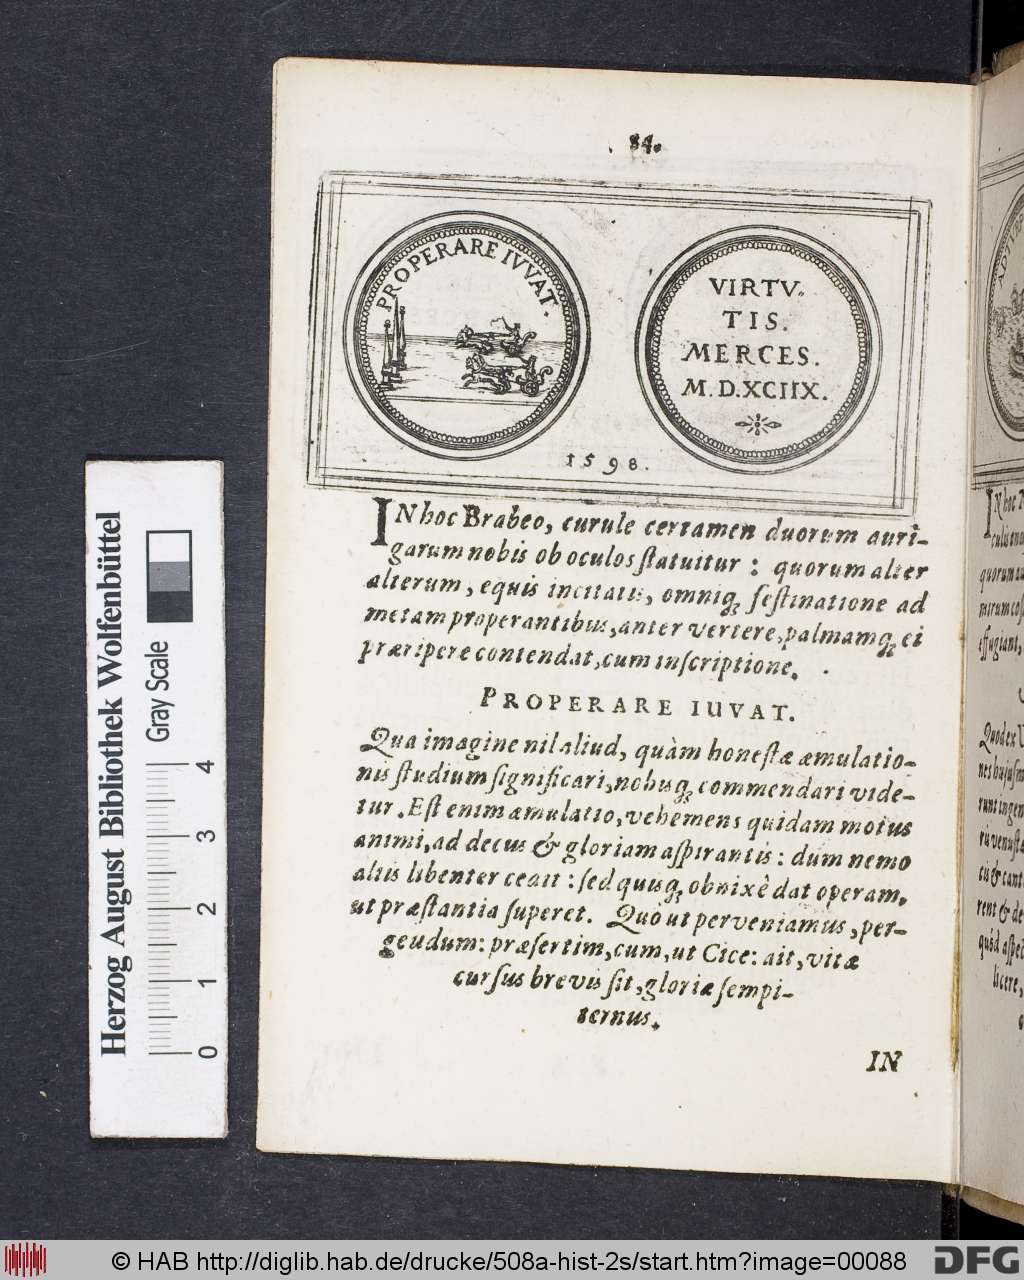 84.
PROPERARE IVVAT.
VIRTV-
TIS.
MERCES.
M.D.XCIIX.
1598.
IN hoc Brabeo, curule certamen duorum auri-
garum nobis ob oculos statuitur : quorum alter
alterum, equis incitatis, omniq; festinatione ad
metam properantibus, antevertere, palmamq; ei
præripere contendat, cum inscriptione.
PROPERARE IUVAT.
Qua imagine nil aliud, quàm honestæ æmulatio-
nis studium significari, nobisq; commendari vide-
tur. Est enim æmulatio, vehemens quidam motus
animi, ad decus & gloriam aspirantis : dum nemo
aliis libenter cedit : sed quisq; obnixè dat operam,
ut præstantia superet. Quo ut perveniamus, per-
geudum : præsertim, cum, ut Cice: ait, vitæ
cursus brevis sit, gloriæ sempi-
ternus.
IN
Herzog August Bibliothek Wolfenbüttel
Gray Scale
0 1 2 3 4
IN hoc
© HAB http://diglib.hab.de/drucke/508a-hist-2s/start.htm?image=00088
DFG